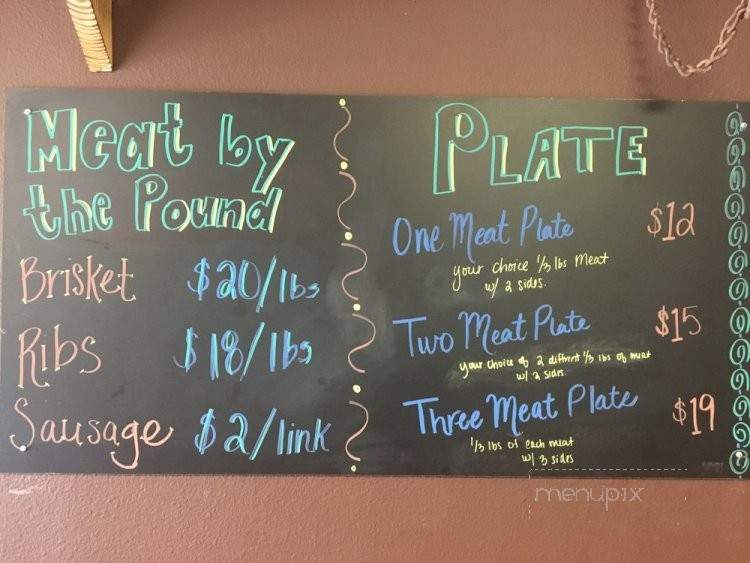 Meat by
the Pound
Brisket $20/lbs
Ribs $18/lbs
Sausage $2/link
PLATE
One Meat Plate $12
your choice 1/3 lbs Meat
w/ 2 sides.
Two Meat Plate $15
your choice of 2 diffrnt 1/3 lbs of meat
w/ 2 sides.
Three Meat Plate $19
1/3 lbs of each meat
w/ 3 sides
menupix